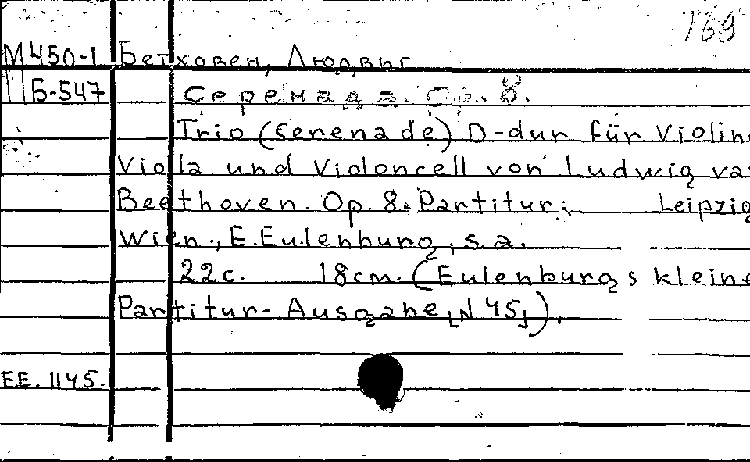 169
М450-1 Бетховен, Людвиг
Б-547 Серенада. Ор. 8.
Trio (Serenade) D-dur für Violin
Violla und Violoncell von Ludwig van
Beethoven. Op. 8. Partitur. Leipzig
Wien, E. Eulenburg, s.a.
22с. 18cm. (Eulenburgs kleine
Partitur-Ausgabe, N 45).
EE. 1145.